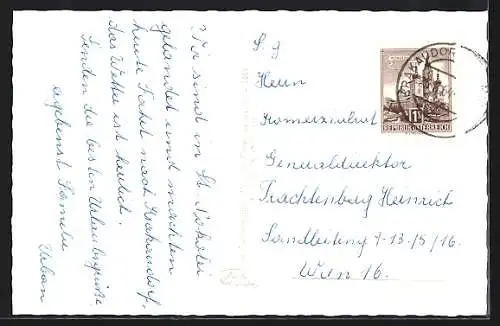 Wir sind in St. Nikolai
gelandet und machten
heute Fahrt nach Krakaudorf,
das Wetter ist herrlich.
Senden die besten Urlaubsgrüße
ergebenst Familie
Urban
S. g.
Herrn
Kommerzialrat
Generaldirektor
Trachtenberg Heinrich
Sandleiteng 7-13/5/16
Wien 16.
KRAKAUDORF
REPUBLIK ÖSTERREICH